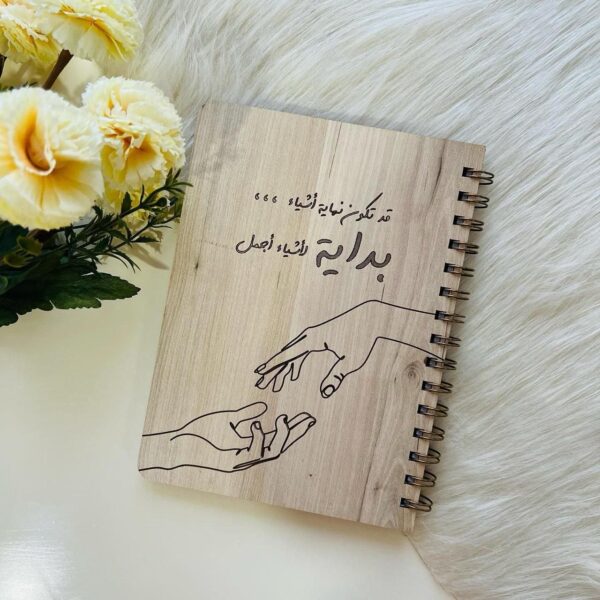 قد تكون نهاية أشياء ،،،
بداية لأشياء أجمل